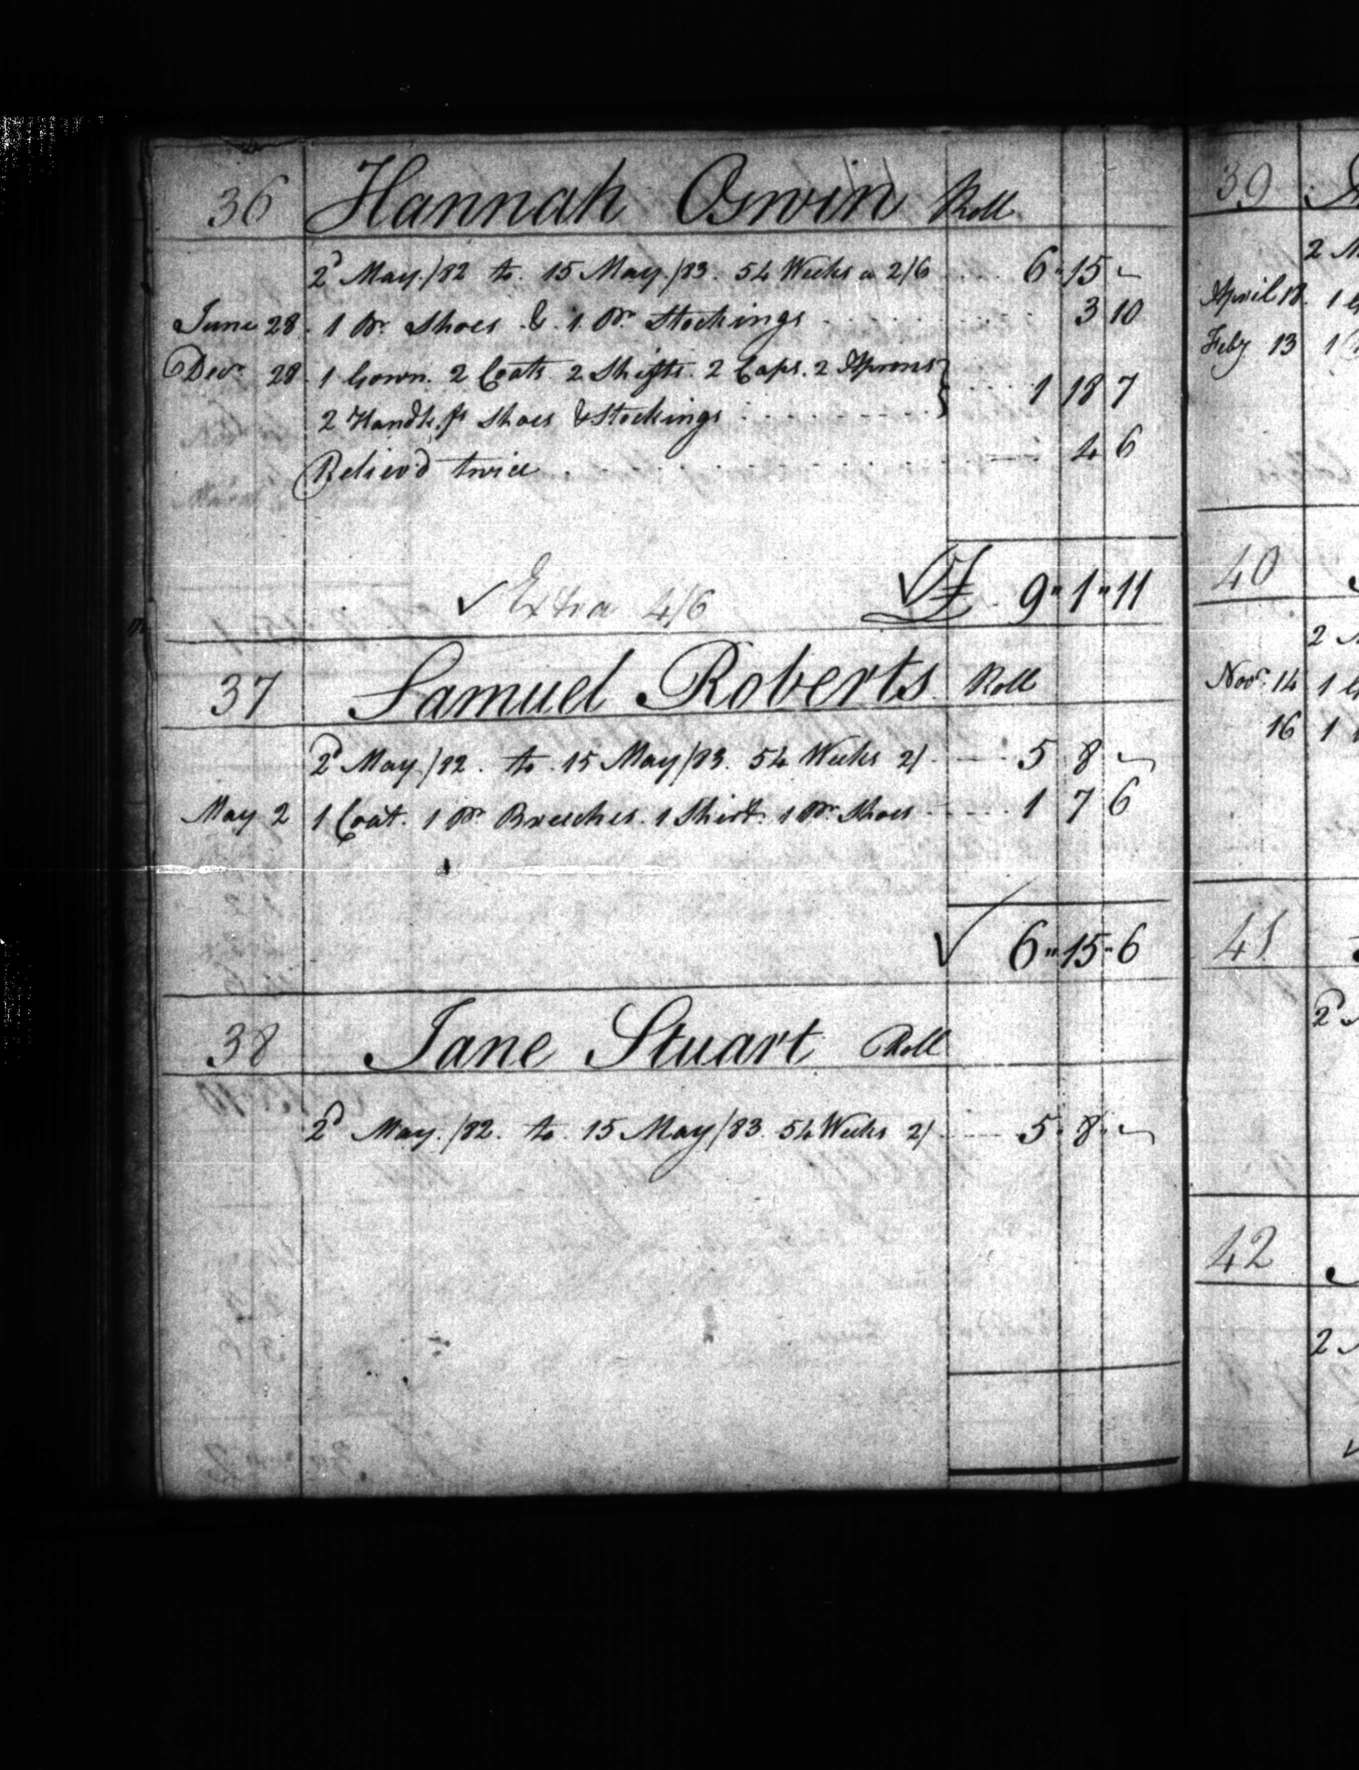 36 Hannah Oswin Roll
2d May/82 to 15 May/83. 54 Weeks a 2/6 6"15 -
June 28. 1 Pr. Shoes & 1 Pr. Stockings 3 10
Decr. 28 1 Gown. 2 Coats 2 Shifts. 2 Caps. 2 Aprons
2 Handk.fs Shoes & Stockings 1 18 7
Reliev'd twice 4 6
✓ Extra 4/6 ✓£ 9"1"11
37 Samuel Roberts Roll
2d May/82. to 15 May/83. 54 Weeks 2/ 5 8 -
May 2 1 Coat. 1 Pr. Breeches. 1 Shirt. 1 Pr. Shoes 1 7 6
✓ 6"15"6
38 Jane Stuart Roll
2d May./82. to 15 May/83. 54 Weeks 2/ 5. 8. -
39
2
April 18. 1
Feby 13 1
40
2
Novr. 14 1
16 1
41
2d
42
2